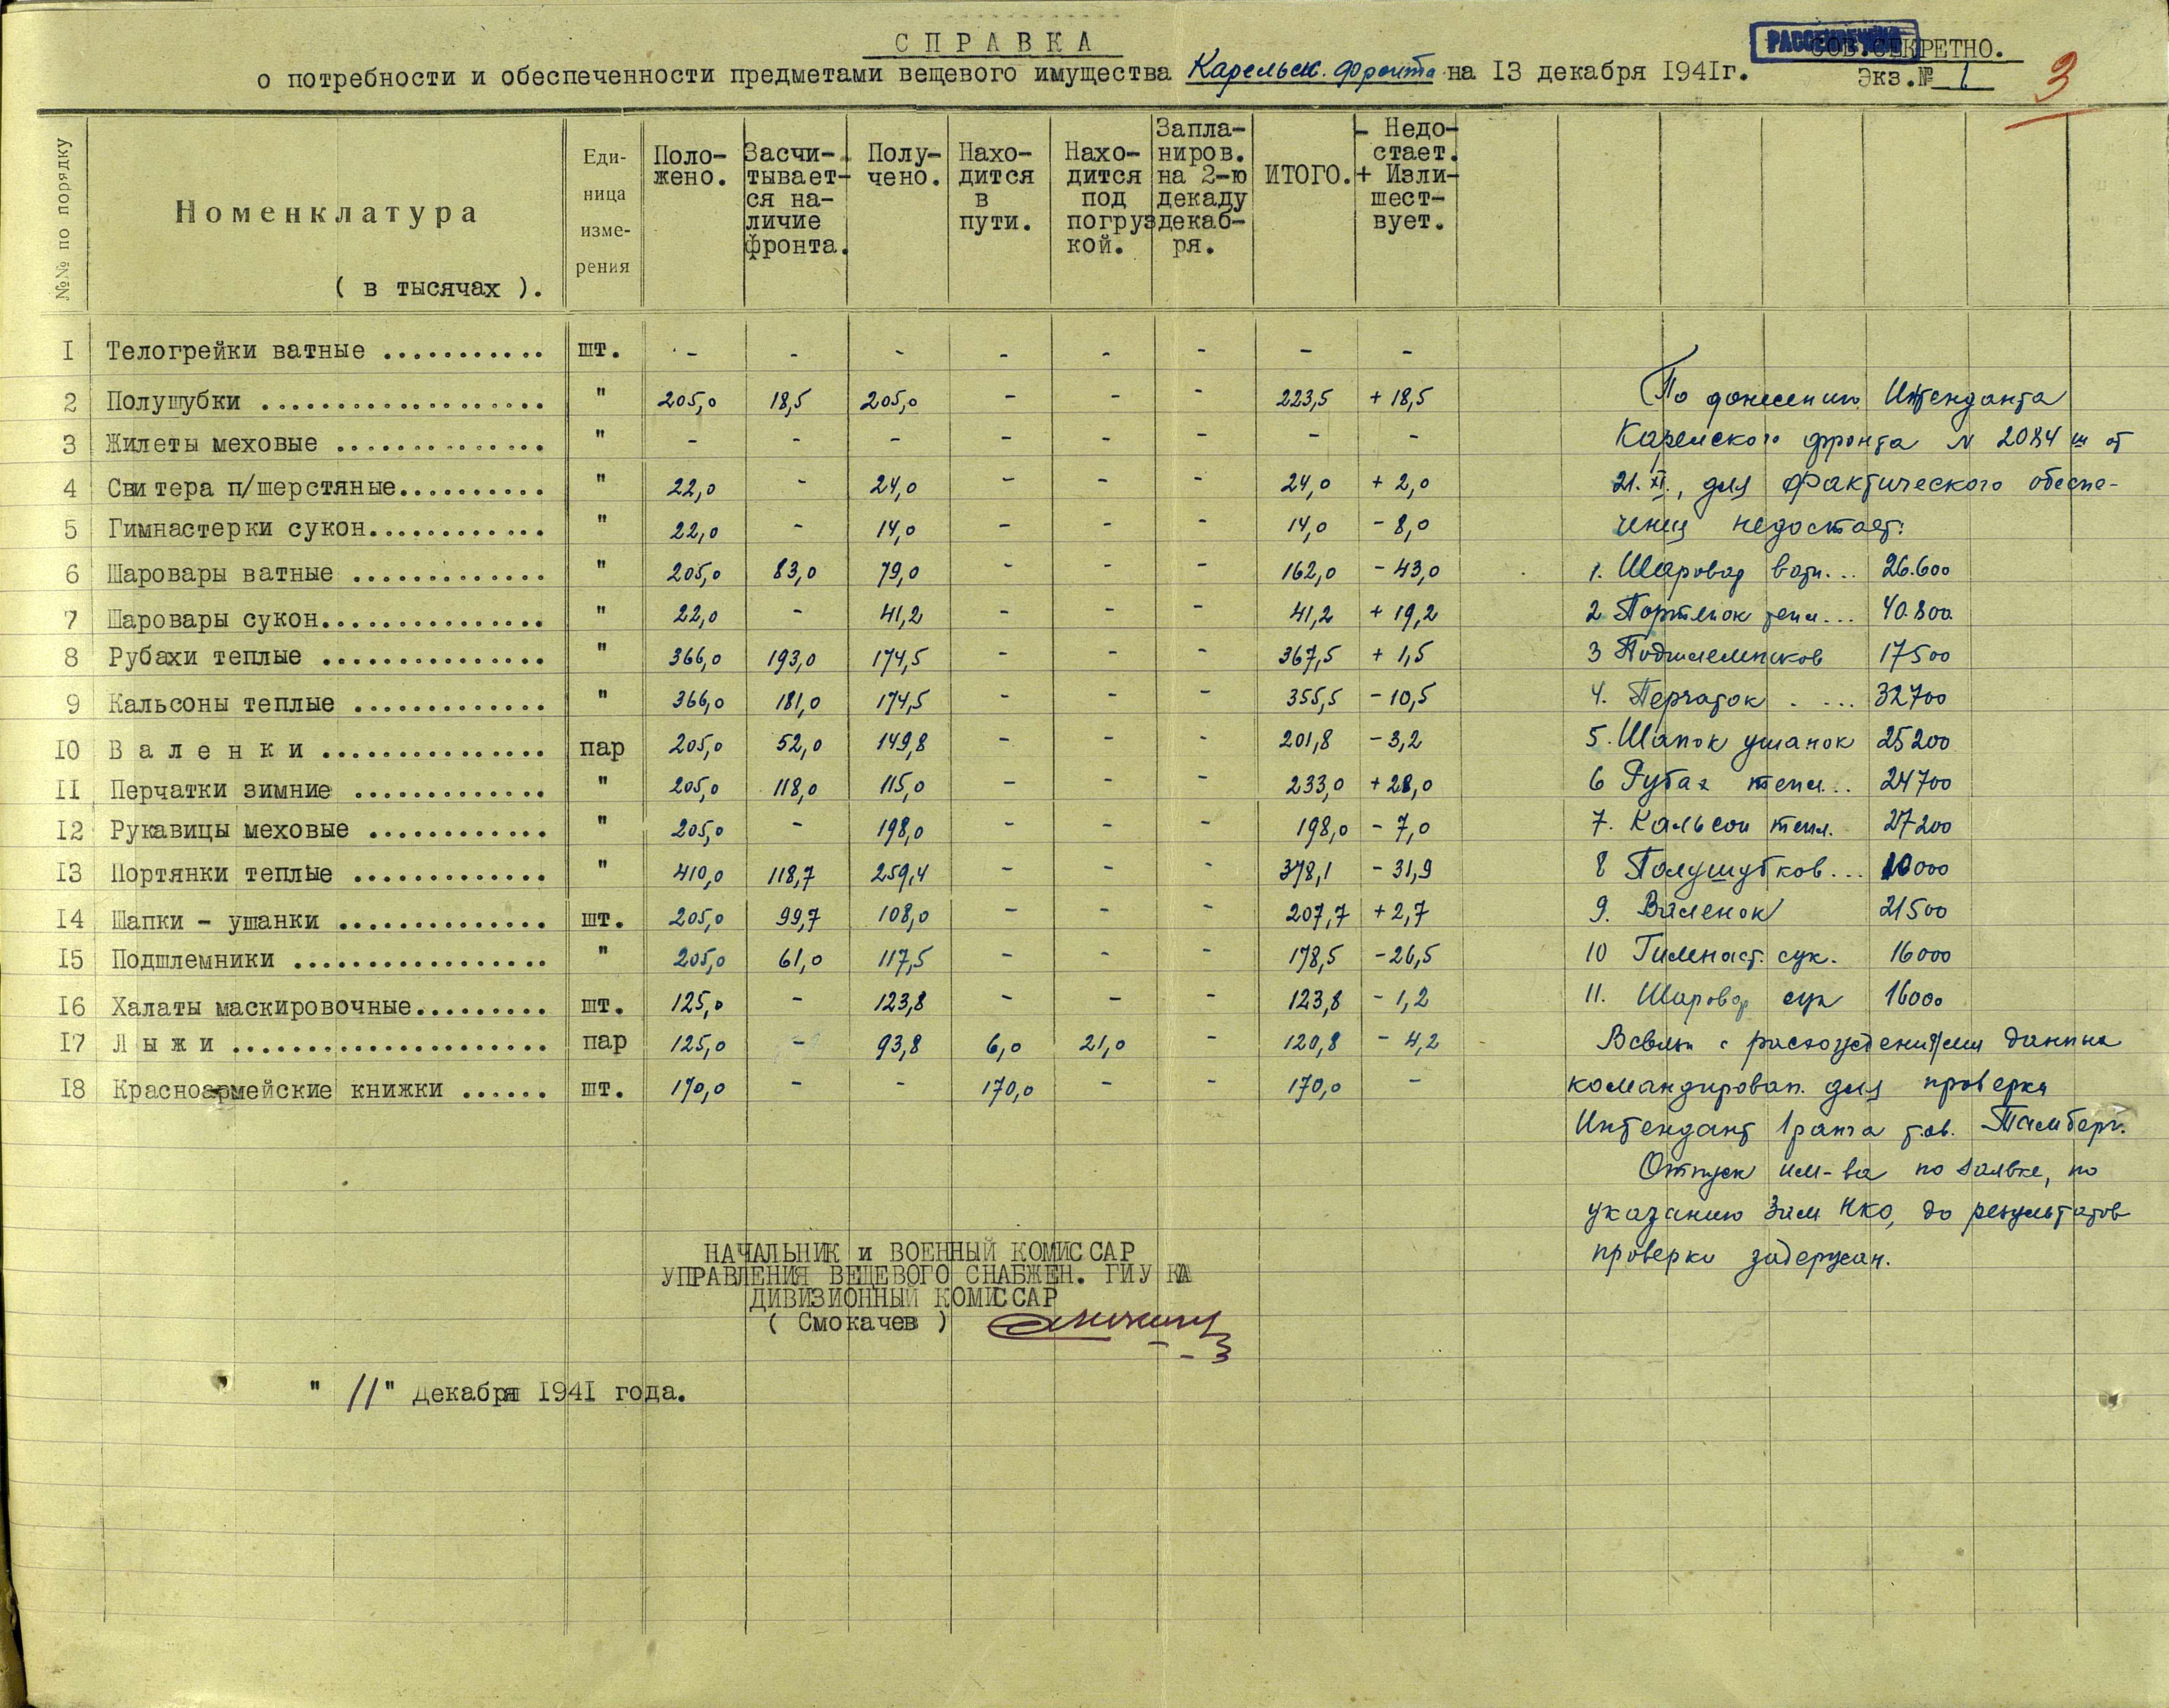 СПРАВКА
РАССЕКРЕЧЕНО
СОВ.СЕКРЕТНО.
о потребности и обеспеченности предметами вещевого имущества Карельск. фронта на 13 декабря 1941г.
Экз.№ 1
3
№№ по порядку
Номенклатура
( в тысячах ).
Еди-
ница
изме-
рения
Поло-
жено.
Засчи-
тывает-
ся на-
личие
фронта.
Полу-
чено.
Нахо-
дится
в
пути.
Нахо-
дится
под
погруз
кой.
Запла-
ниров.
на 2-ю
декаду
декаб-
ря.
ИТОГО.
- Недо-
стает.
+ Изли-
шест-
вует.
1 Телогрейки ватные ........... шт. - - - - - - - -
2 Полушубки ................... " 205,0 18,5 205,0 - - - 223,5 + 18,5
3 Жилеты меховые .............. " - - - - - - - -
4 Свитера п/шерстяные.......... " 22,0 - 24,0 - - - 24,0 + 2,0
5 Гимнастерки сукон............ " 22,0 - 14,0 - - - 14,0 - 8,0
6 Шаровары ватные ............. " 205,0 83,0 79,0 - - - 162,0 - 43,0
7 Шаровары сукон............... " 22,0 - 41,2 - - - 41,2 + 19,2
8 Рубахи теплые ............... " 366,0 193,0 174,5 - - - 367,5 + 1,5
9 Кальсоны теплые ............. " 366,0 181,0 174,5 - - - 355,5 - 10,5
10 Валенки ............... пар 205,0 52,0 149,8 - - - 201,8 - 3,2
11 Перчатки зимние ............. " 205,0 118,0 115,0 - - - 233,0 + 28,0
12 Рукавицы меховые ............ " 205,0 - 198,0 - - - 198,0 - 7,0
13 Портянки теплые ............. " 410,0 118,7 259,4 - - - 378,1 - 31,9
14 Шапки - ушанки .............. шт. 205,0 99,7 108,0 - - - 207,7 + 2,7
15 Подшлемники ................. " 205,0 61,0 117,5 - - - 178,5 - 26,5
16 Халаты маскировочные......... шт. 125,0 - 123,8 - - - 123,8 - 1,2
17 Лыжи ...................... пар 125,0 - 93,8 6,0 21,0 - 120,8 - 4,2
18 Красноармейские книжки ...... шт. 170,0 - - 170,0 - - 170,0 -
По донесению Интенданта
Карельского фронта N 2084 ш от
21.XI., для фактического обеспе-
чения недостает:
1. Шаровар ватн... 26.600
2 Портянок тепл... 40.800.
3 Подшлемников 17500
4. Перчаток . ... 32700
5. Шапок ушанок 25200
6 Рубах тепл... 24700
7. Кальсон тепл. 27200
8 Полушубков... 10000
9. Валенок 21500
10 Гимнаст. сук. 16000
11. Шаровар сук 16000
Всвязи с расхождениями данных
командирован. для проверки
Интендант 1 ранга тов. Тамберг.
Отпуск им-ва по заявке, по
указанию Зам НКО, до результатов
проверки задержан.
НАЧАЛЬНИК и ВОЕННЫЙ КОМИССАР
УПРАВЛЕНИЯ ВЕЩЕВОГО СНАБЖЕН. ГИУ КА
ДИВИЗИОННЫЙ КОМИССАР
( Смокачев )
" 11 " декабря 1941 года.